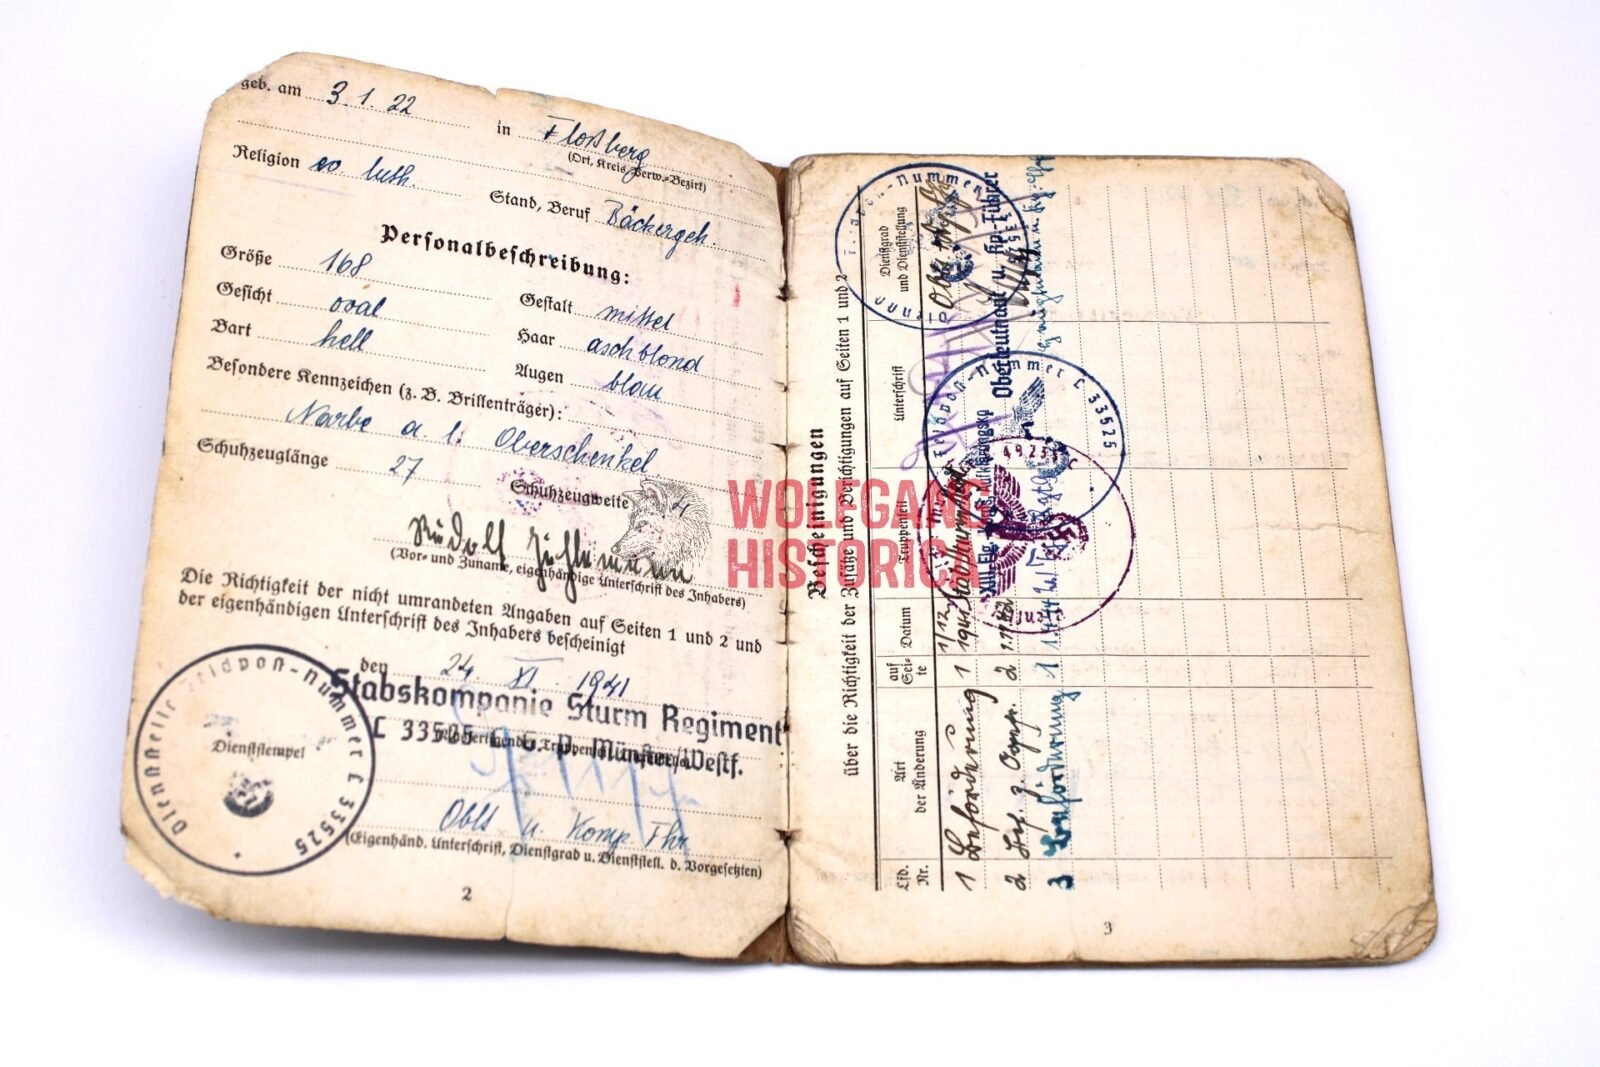 geb. am 3. 1. 22
in Floßberg
(Ort, Kreis, Verw.-Bezirk)
Religion ev. luth.
Stand, Beruf Bäckergeh.
Personalbeschreibung:
Größe 168
Gestalt mittel
Gesicht oval
Haar aschblond
Bart hell
Augen blau
Besondere Kennzeichen (z. B. Brillenträger):
Narbe a. l. Oberschenkel
Schuhzeuglänge 27
Schuhzeugweite 4
Rudolf
(Vor- und Zuname, eigenhändige Unterschrift des Inhabers)
Die Richtigkeit der nicht umrandeten Angaben auf Seiten 1 und 2 und
der eigenhändigen Unterschrift des Inhabers bescheinigt
den 24. XI. 1941
Stabskompanie Sturm Regiment
L 33525 L. G. P. Münster/Westf.
Dienststelle Feldpost-Nummer L 33525
Dienststempel
Oblt u. Komp. Fhr
(Eigenhänd. Unterschrift, Dienstgrad u. Dienststell. d. Vorgesetzten)
2
WOLFGANG
HISTORICA
Bescheinigungen
über die Richtigkeit der Zusätze und Berichtigungen auf Seiten 1 und 2
Lfd. Nr.
Art der Änderung
auf Seite
Datum
Truppenteil
Unterschrift
Dienstgrad und Dienststellung
1 Beförderung 1
2 2
3 Beförderung 1
Oberleutnant u. Kp.-Führer
Feldpost-Nummer L 33525
3